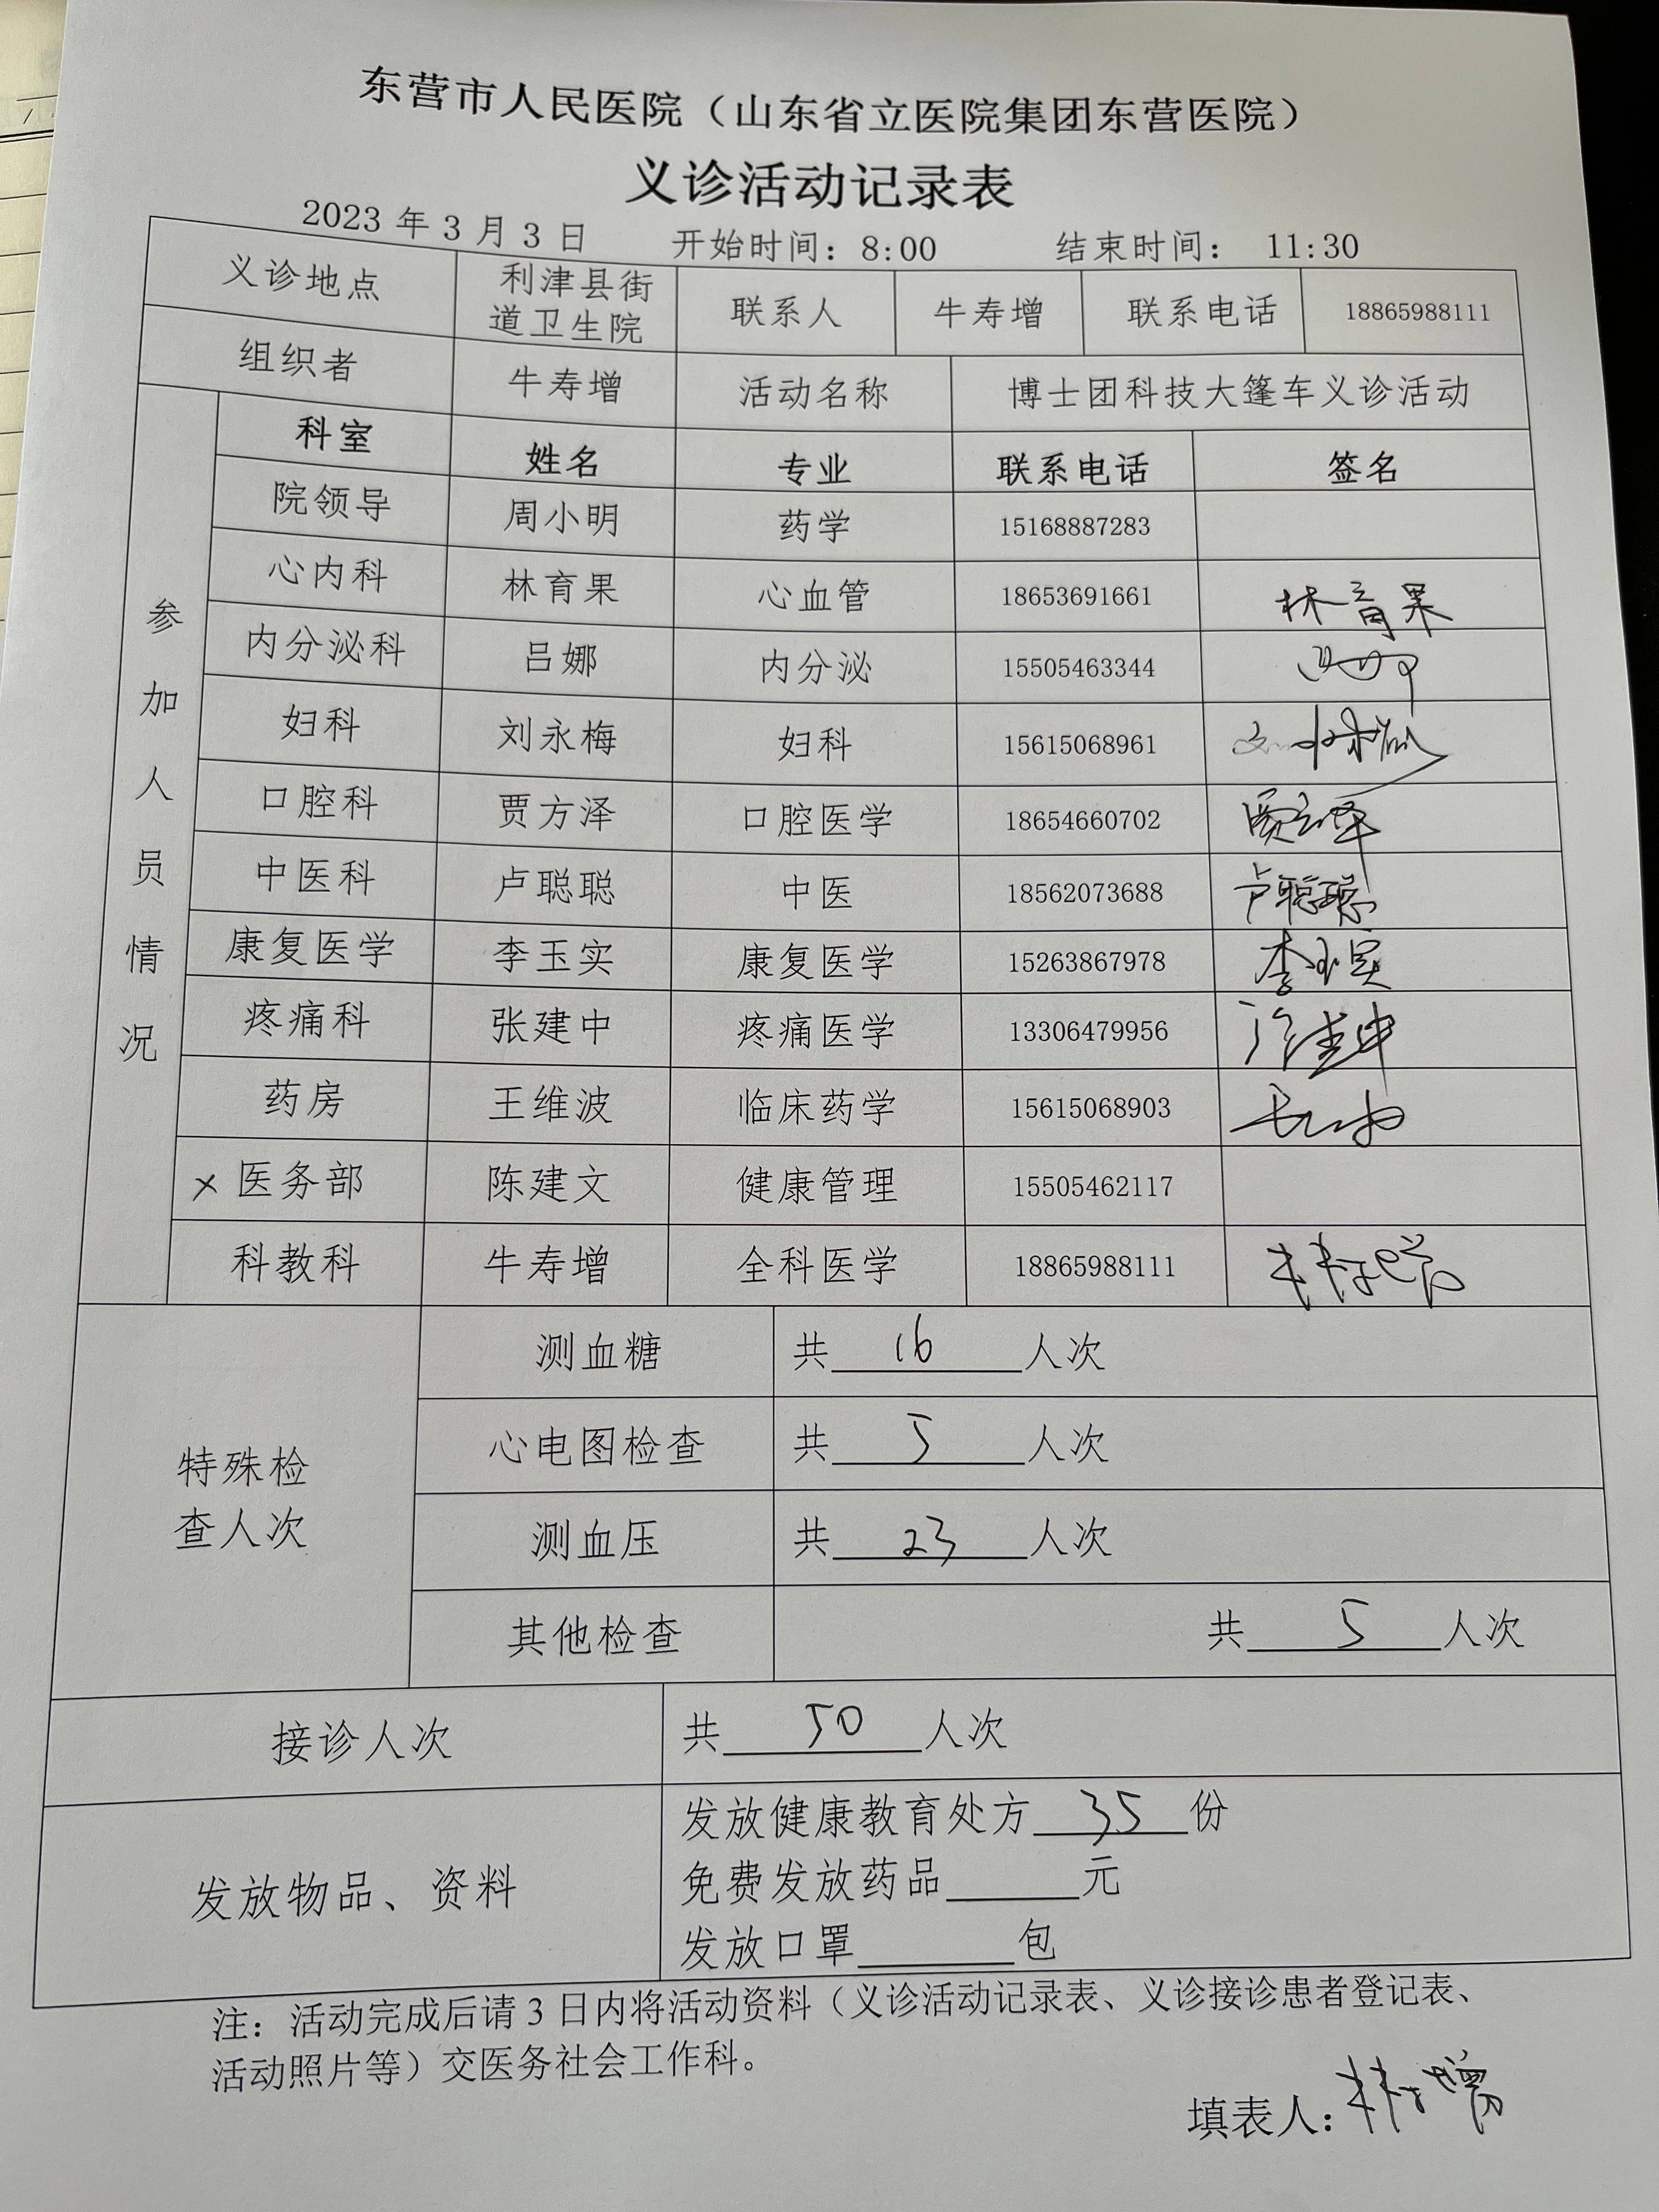 东营市人民医院（山东省立医院集团东营医院）
义诊活动记录表
2023 年 3 月 3 日 开始时间：8:00 结束时间： 11:30
义诊地点 利津县街道卫生院 联系人 牛寿增 联系电话 18865988111
组织者 牛寿增 活动名称 博士团科技大篷车义诊活动
参加人员情况
科室 姓名 专业 联系电话 签名
院领导 周小明 药学 15168887283
心内科 林育果 心血管 18653691661 林育果
内分泌科 吕娜 内分泌 15505463344
妇科 刘永梅 妇科 15615068961
口腔科 贾方泽 口腔医学 18654660702 贾方泽
中医科 卢聪聪 中医 18562073688 卢聪聪
康复医学 李玉实 康复医学 15263867978 李玉实
疼痛科 张建中 疼痛医学 13306479956 张建中
药房 王维波 临床药学 15615068903
× 医务部 陈建文 健康管理 15505462117
科教科 牛寿增 全科医学 18865988111 牛寿增
特殊检查人次
测血糖 共 16 人次
心电图检查 共 5 人次
测血压 共 23 人次
其他检查 共 5 人次
接诊人次 共 50 人次
发放物品、资料
发放健康教育处方 35 份
免费发放药品______元
发放口罩______包
注：活动完成后请 3 日内将活动资料（义诊活动记录表、义诊接诊患者登记表、
活动照片等）交医务社会工作科。
填表人：牛寿增